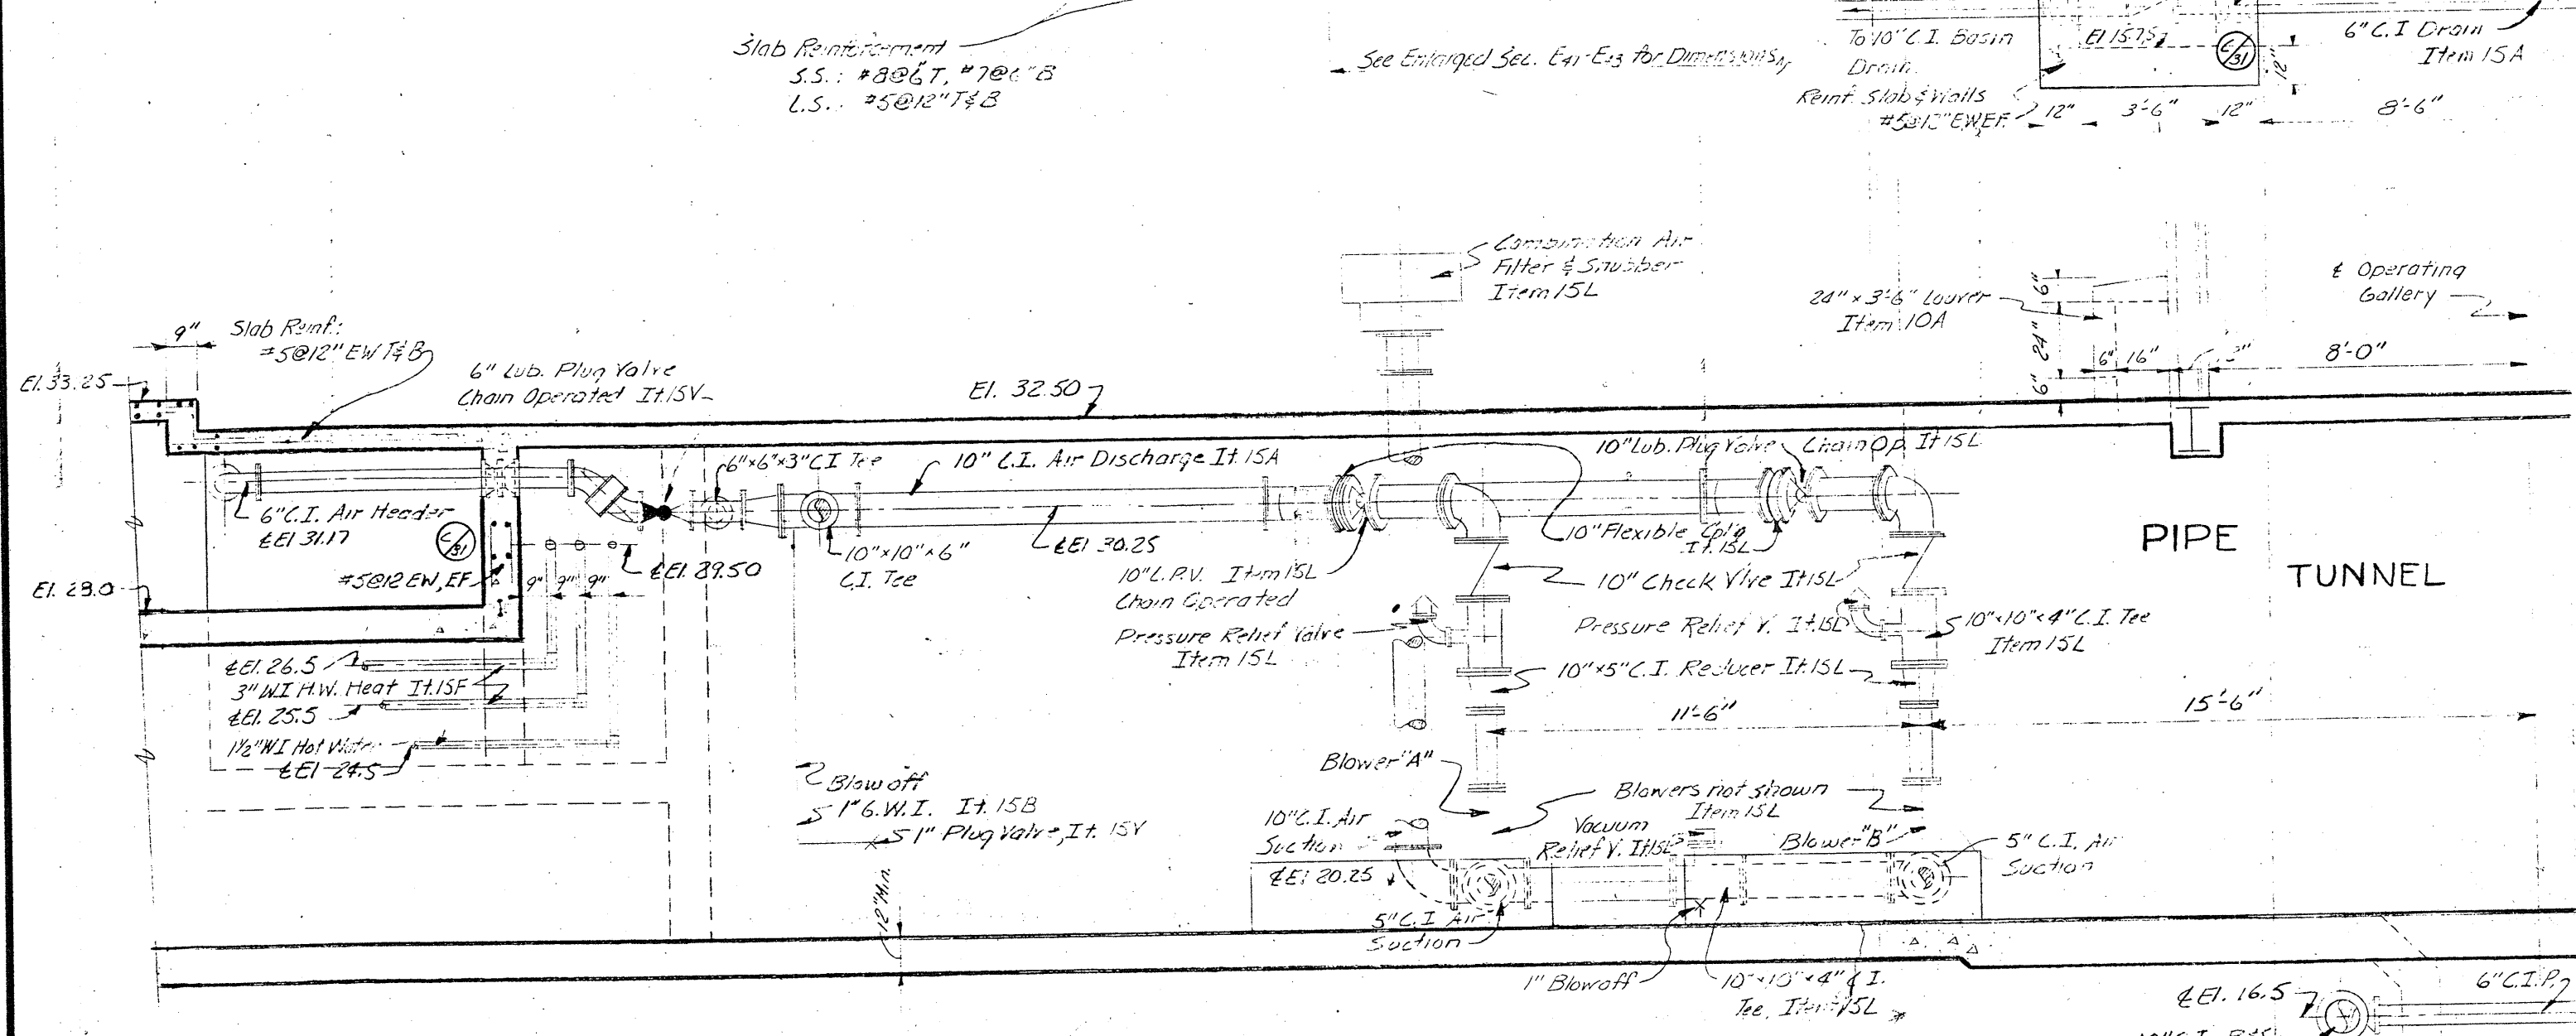 Slab Reinforcement
S.S.: #8@6"T, #7@6"B
L.S.: #5@12"T&B
See Enlarged Sec. E41-E43 for Dimensions
To 10" C.I. Basin
Drain
El 15.75
C/31
12"
6" C.I Drain
Item 15A
Reinf. Slab & Walls
#5@12" EW.EF.
12"
3'-6"
12"
8'-6"
Combination Air
Filter & Snubber
Item 15L
24" x 3'-6" Louver
Item 10A
6"
24"
6"
6"
16"
8'-0"
℄ Operating
Gallery
9"
Slab Reinf:
#5@12" EW T&B
El. 33.25
6" Lub. Plug Valve
Chain Operated It.15V
El. 32.50
6"x6"x3" CI Tee
10" C.I. Air Discharge It.15A
10" Lub. Plug Valve Chain Op. It 15L
6" C.I. Air Header
℄ El 31.17
C/31
#5@12 EW, EF
El. 29.0
9" 9" 9"
℄ El. 29.50
10"x10"x6"
C.I. Tee
℄ El 30.25
10" Flexible Cplg
It.15L
10" L.P.V. Item 15L
Chain Operated
10" Check Vlve It 15L
PIPE
TUNNEL
Pressure Relief Valve
Item 15L
Pressure Relief V. It.15L
10"x10"x4" C.I. Tee
Item 15L
10"x5" C.I. Reducer It.15L
℄ El. 26.5
3" W.I H.W. Heat It.15F
℄ El. 25.5
1½" W.I Hot Water
℄ El 24.5
11'-6"
15'-6"
Blow off
1" G.W.I. It. 15B
1" Plug Valve, It. 15V
Blower "A"
Blowers not shown
Item 15L
10" C.I. Air
Suction
Vacuum
Relief V. It15L
Blower "B"
5" C.I. Air
Suction
℄ El 20.25
5" C.I Air
Suction
12" Min.
1" Blowoff
10"x10"x4" C.I.
Tee, Item 15L
℄ El. 16.5
6" C.I.P.